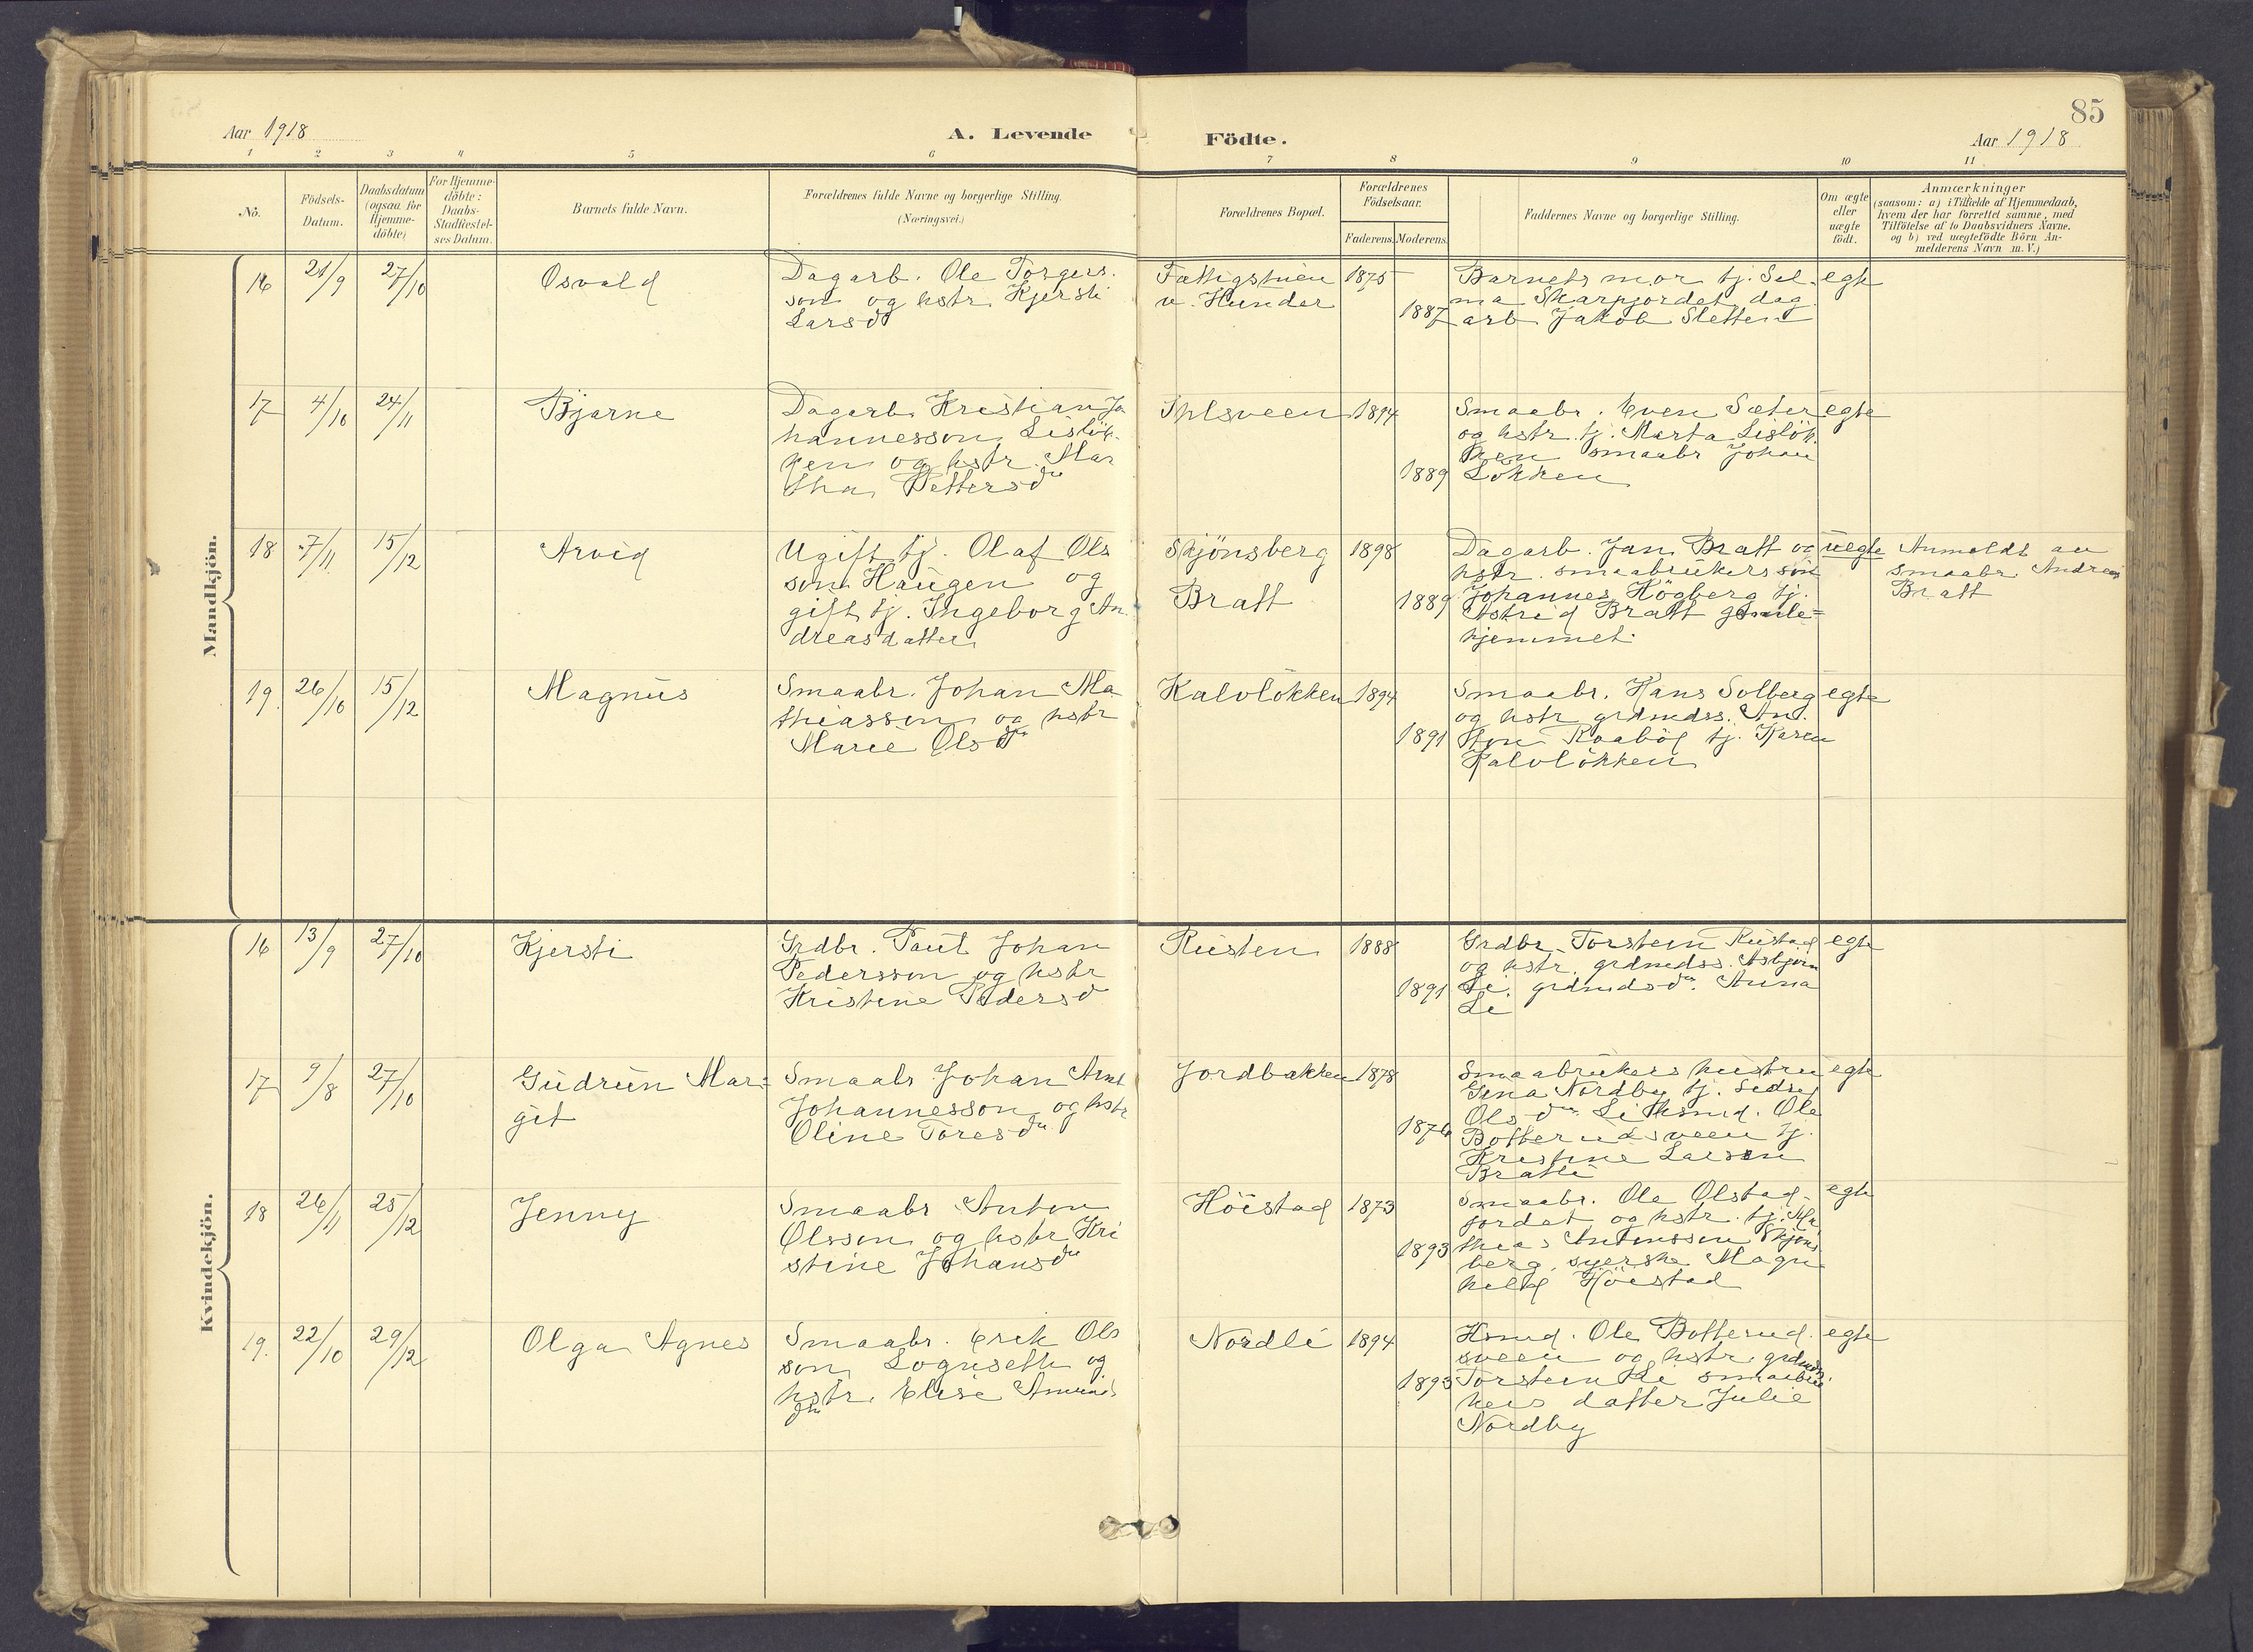 85
Aar 1918
A. Levende Födte.
Aar 1918
1 2 3 4 5 6 7 8 9 10 11
No.
Födsels-
Datum.
Daabsdatum
(ogsaa for
Hjemme-
döbte)
For Hjemme-
döbte:
Daabs-
Stadfæstel-
ses Datum.
Barnets fulde Navn.
Forældrenes fulde Navne og borgerlige Stilling.
(Næringsvei.)
Forældrenes Bopæl.
Forældrenes
Födselsaar.
Faderens. Moderens.
Faddernes Navne og borgerlige Stilling.
Om ægte
eller
uægte
födt.
Anmærkninger
(saasom: a) i Tilfælde af Hjemmedaab,
hvem der har forrettet samme, med
Tilföielse af to Daabsvidners Navne.
og b) ved uægtefödte Börn An-
melderens Navn m. V.)
Mandkjön.
16 21/9 27/10 Osvald
Dagarb. Ole Torgers.
son og hstr. Kjersti
Larsd
Fattigstuen
v. Hunder
1875
1887
Barnets mor tj. Sel-
ma Skarpjordet dag
arb Jakob Sletten
egte
17 4/10 24/11 Bjarne
Dagarb. Kristian Jo
hannesson Lislök-
ken og hstr. Mar
tha Pettersdtr
1894
1889
Smaabr. Even Sæter
og hstr. tj. Marta Lislök
ken smaabr Johan
Lökken
egte
18 7/11 15/12 Arvid
Ugift tj. Olaf Ols
son Haugen og
gift tj. Ingeborg An.
dreasdatter
Skjönsberg
Bratt
1898
1889
Dagarb. Jan Bratt og
hstr. smaabrukers sön
Johannes Högberg tj.
Astrid Bratt gamle=
hjemmet.
uegte
Anmeldt av
smaabr. Andreas
Bratt
19. 26/10 15/12 Magnus
Smaabr. Johan Ma
thiasson og hstr
Marie Olsdtr
Kalvlökken
1894
1891
Smaabr. Hans Solberg
og hstr grdmdss. An.
ton Raaböl tj. Karen
Kalvlökken
egte
Kvindekjön.
16 13/9 27/10 Kjersti
Grdbr. Paul Johan
Pedersson og hstr
Kristine Pedersd
Rusten
1888
1891
Grdbr. Torstein Rustad
og hstr. grdmdss. Asbjörn
Li. grdmdsdtr. Anna
Li
egte
17 9/8 27/10 Gudrun Mar=
git
Smaabr Johan Arnt
Johannesson og hstr
Oline Toresdtr
Jordbakken
1878
1876
Smaabrukers hustru
Gina Nordby tj.
Olsdtr. Li Hsmd. Ole
Botterudsveen tj.
Kristine Larsen
Bratli
egte
18 26/11 25/12 Jenny
Smaabr Anton
Olsson og hstr Kri
stine Johansdtr
Höistad
1873
1893
Smaabr. Ole Olstad-
jordet og hstr. tj. Ma
thias Antonsson Skjöns
berg, syerske Magn
hild Höistad
egte
19. 22/10 29/12 Olga Agnes
Smaabr. Erik Ols
son Lognseth og
hstr. Elise Amunds
dtr
Nordli
1894
1893
Hsmd. Ole Botterud.
sveen og hstr. grdmds.
Torstein Li smaabru
kers datter Julie
Nordby
egte